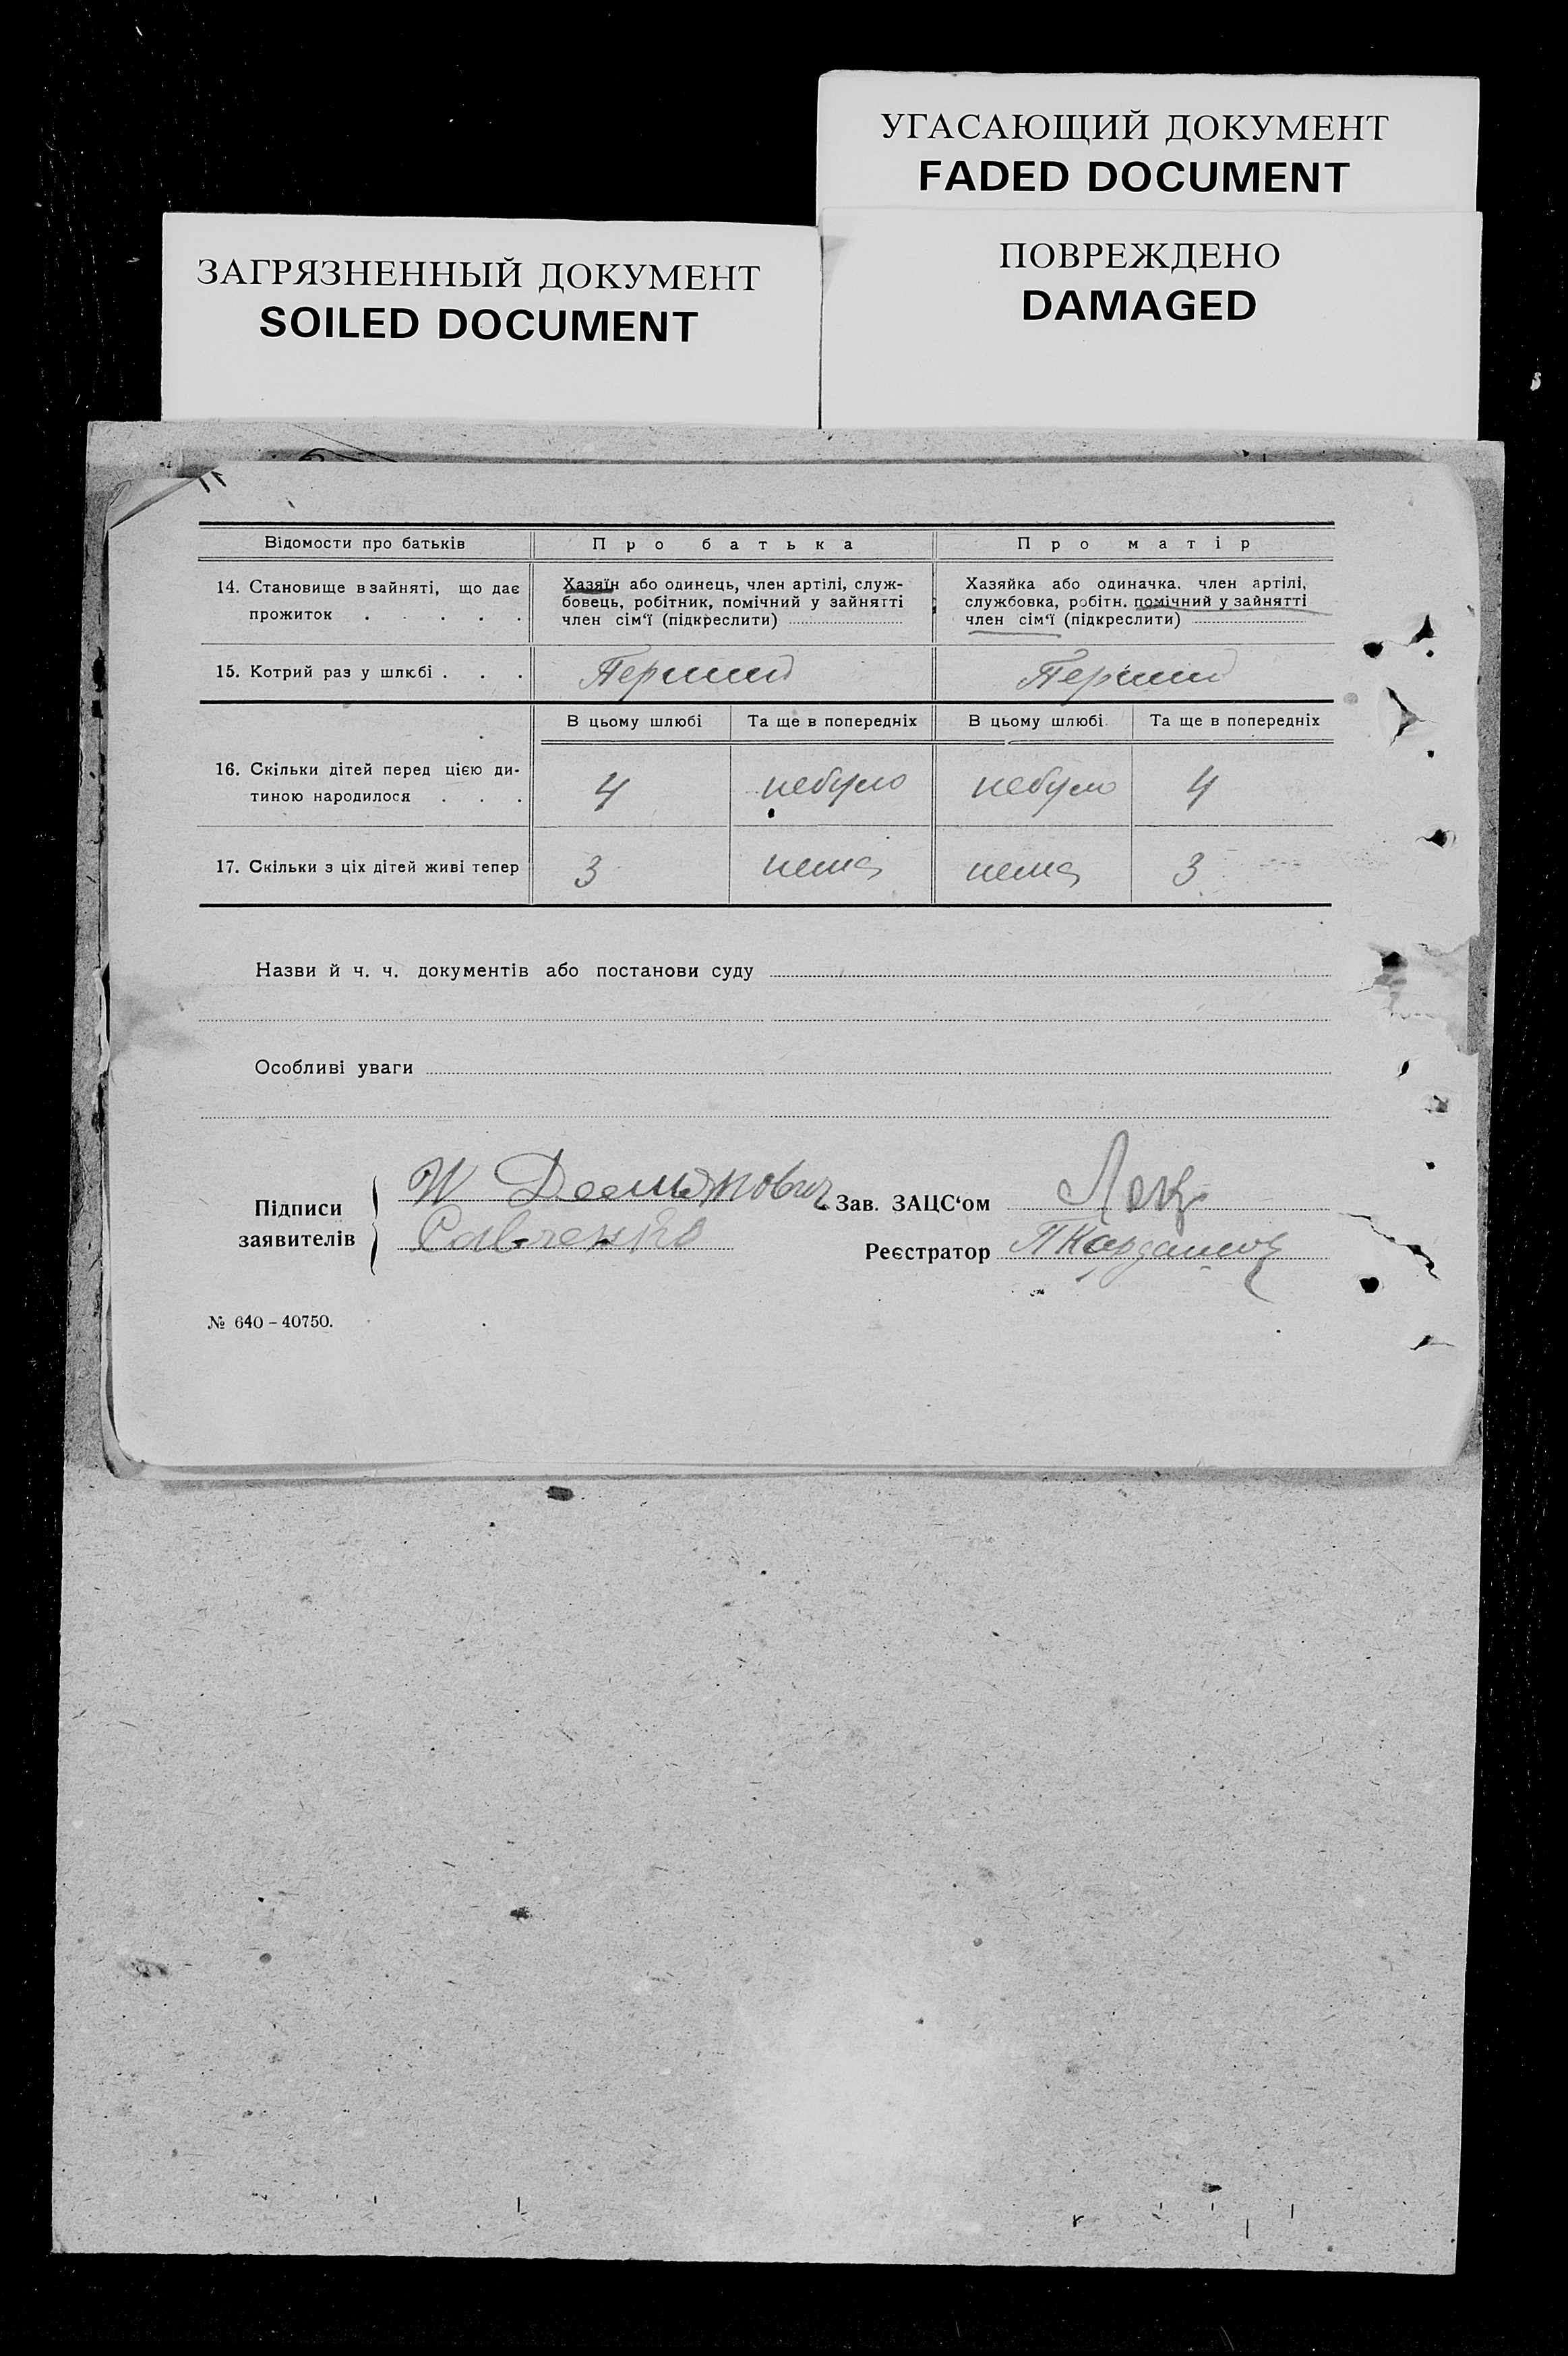 УГАСАЮЩИЙ ДОКУМЕНТ
FADED DOCUMENT
ЗАГРЯЗНЕННЫЙ ДОКУМЕНТ
SOILED DOCUMENT
ПОВРЕЖДЕНО
DAMAGED
Відомости про батьків Про батька Про матір
14. Становище в зайняті, що дає
прожиток . . . . .
Хазяїн або одинець, член артілі, служ-
бовець, робітник, помічний у зайнятті
член сім‘ї (підкреслити)
Хазяйка або одиначка. член артілі,
службовка, робітн. помічний у зайнятті
член сім‘ї (підкреслити)
15. Котрий раз у шлюбі . . . Перший Перший
В цьому шлюбі Та ще в попередніх В цьому шлюбі Та ще в попередніх
16. Скільки дітей перед цією ди-
тиною народилося . . . 4 небуло небуло 4
17. Скільки з ціх дітей живі тепер 3 нема нема 3
Назви й ч. ч. документів або постанови суду
Особливі уваги
Підписи
заявителів
Савченко
Зав. ЗАЦС‘ом
Реєстратор
№ 640 – 40750.